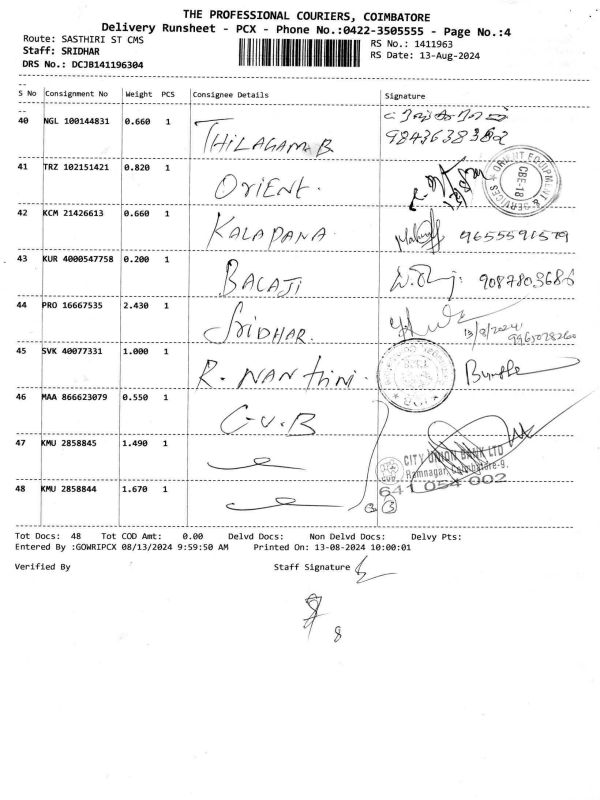 THE PROFESSIONAL COURIERS, COIMBATORE
Delivery Runsheet - PCX - Phone No.:0422-3505555 - Page No.:4
Route: SASTHIRI ST CMS
Staff: SRIDHAR
DRS No.: DCJB141196304
RS No.: 1411963
RS Date: 13-Aug-2024
S No Consignment No Weight PCS Consignee Details Signature
40 NGL 100144831 0.660 1 THILAGAM B
9843638382
41 TRZ 102151421 0.820 1 ORIENT.
ORIENT EQUIPMENT & SERVICES
CBE-18
42 KCM 21426613 0.660 1 KALAPANA 9655591579
43 KUR 4000547758 0.200 1 BALAJI 9087803686
44 PRO 16667535 2.430 1 SRIDHAR.
13/8/2024
9965028260
45 SVK 40077331 1.000 1 R. NANthini.
46 MAA 866623079 0.550 1 C.U.B
47 KMU 2858845 1.490 1
CITY UNION BANK LTD
Ramnagar, Coimbatore-9.
CUB
641 054 002
48 KMU 2858844 1.670 1 3
Tot Docs: 48 Tot COD Amt: 0.00 Delvd Docs: Non Delvd Docs: Delvy Pts:
Entered By :GOWRIPCX 08/13/2024 9:59:50 AM Printed On: 13-08-2024 10:00:01
Verified By Staff Signature
8